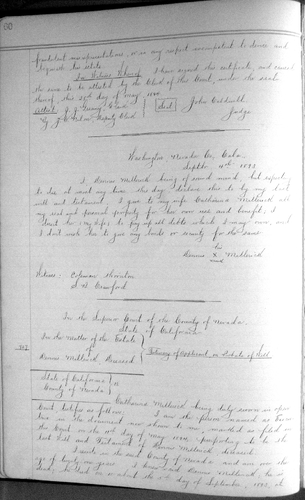 60
fraudulent misrepresentations, or in any respect incompetent to devise and
bequeath his estate.
In Witness Whereof I have signed this certificate, and caused
the same to be attested by the Clerk of this Court, under the seal
thereof, this 25th day of May 1888.
Attest: J. J. Clerk
By J. Deputy Clerk
Seal
John Caldwell
Judge
Washington, Nevada Co, Cala.
Septbr 4th 1882
I, Dennis Millward being of sound mind, but expect
to die at most any time this day declare this to by my last
will and testament. I give to my wife Catharina Millward all
my real and personal property for her own use and benefit, I
want her my wife to pay up all debts which I may owe, and
I dont wish her to give any bonds or security for the same
his
Dennis X Millward
mark
Witness: Thornton
Crawford
In the Superior Court of the County of Nevada.
State of California
In the Matter of the Estate
of
Dennis Millward Deceased
Testimony of Applicant on Probate of Will
State of California
County of Nevada
ss
Catharina Millward being duly sworn in open
Court, testifies as follows: I am the person named as
in the document now shown to me, marked as filed in
the Court on the day of May 1888, purporting to be the
last Will and Testament of Dennis Millward deceased.
I reside in the said County of Nevada and am over the
age of years. I knew said Dennis Millward,
dead, he died on or about the day of September, 1882, at